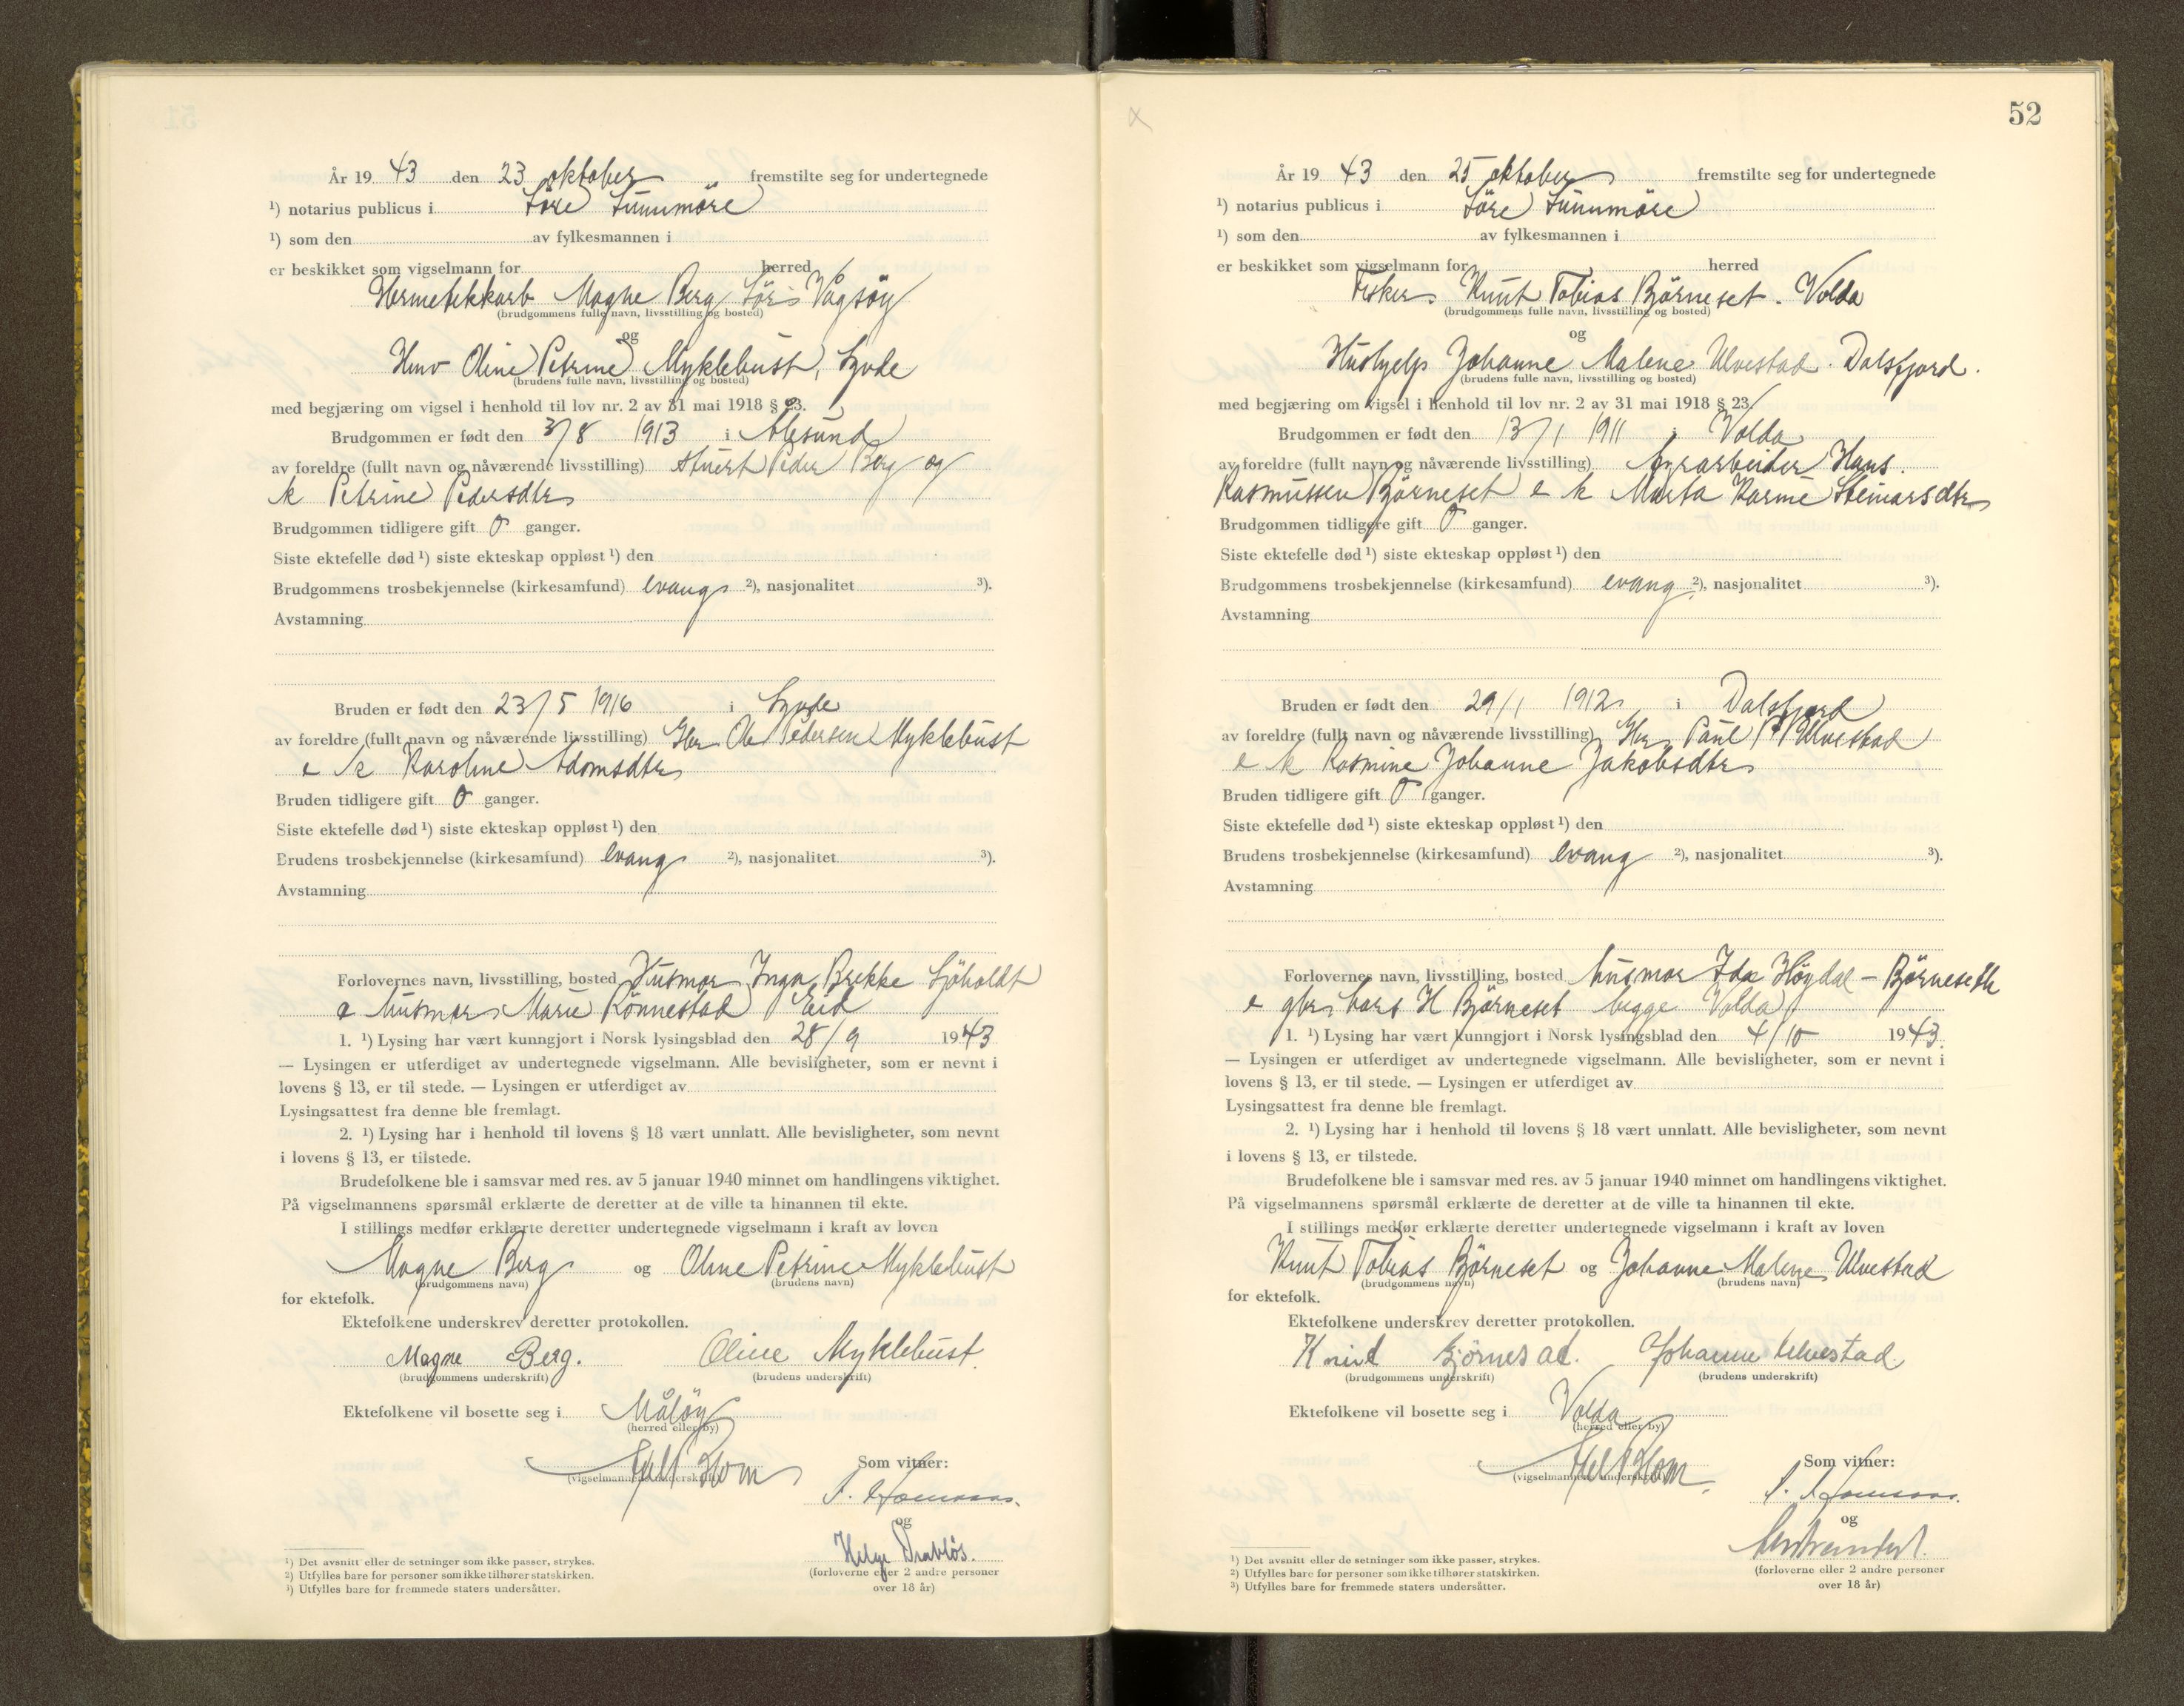 År 19 43 den 23 oktober fremstilte seg for undertegnede
¹) notarius publicus i Söre Sunnmöre
¹) som den av fylkesmannen i
er beskikket som vigselmann for herred
Hermetikkarb Magne Berg Sör Vågsöy
(brudgommens fulle navn, livsstilling og bosted)
og
Husv Oline Petrine Myklebust, Syvde
(brudens fulle navn, livsstilling og bosted)
med begjæring om vigsel i henhold til lov nr. 2 av 31 mai 1918 § 23.
Brudgommen er født den 3/8 1913 i Ålesund
av foreldre (fullt navn og nåværende livsstilling) Stuert Peder Berg og
k Petrine Pedersdtr
Brudgommen tidligere gift 0 ganger.
Siste ektefelle død ¹) siste ekteskap oppløst ¹) den
Brudgommens trosbekjennelse (kirkesamfund) evang ²), nasjonalitet ³).
Avstamning
Bruden er født den 23/5 1916 i Syvde
av foreldre (fullt navn og nåværende livsstilling) Gbr Ole Pedersen Myklebust
e k Karoline Adamsdtr
Bruden tidligere gift 0 ganger.
Siste ektefelle død ¹) siste ekteskap oppløst ¹) den
Brudens trosbekjennelse (kirkesamfund) evang ²), nasjonalitet ³).
Avstamning
Forlovernes navn, livsstilling, bosted Husmor Inga Brekke Sjöholdt
e husmor Marie Rönnestad Eid
1. ¹) Lysing har vært kunngjort i Norsk lysingsblad den 28/9 1943
— Lysingen er utferdiget av undertegnede vigselmann. Alle bevisligheter, som er nevnt i
lovens § 13, er til stede. — Lysingen er utferdiget av
Lysingsattest fra denne ble fremlagt.
2. ¹) Lysing har i henhold til lovens § 18 vært unnlatt. Alle bevisligheter, som nevnt
i lovens § 13, er tilstede.
Brudefolkene ble i samsvar med res. av 5 januar 1940 minnet om handlingens viktighet.
På vigselmannens spørsmål erklærte de deretter at de ville ta hinannen til ekte.
I stillings medfør erklærte deretter undertegnede vigselmann i kraft av loven
Magne Berg og Oline Petrine Myklebust
(brudgommens navn) (brudens navn)
for ektefolk.
Ektefolkene underskrev deretter protokollen.
Magne Berg. Oline Myklebust.
(brudgommens underskrift) (brudens underskrift)
Ektefolkene vil bosette seg i Målöy
(herred eller by)
Blom
(vigselmannens underskrift)
Som vitner:
og
Helge Drabløs.
(forloverne eller 2 andre personer
over 18 år)
¹) Det avsnitt eller de setninger som ikke passer, strykes.
²) Utfylles bare for personer som ikke tilhører statskirken.
³) Utfylles bare for fremmede staters undersåtter.
52
År 19 43 den 25 oktober fremstilte seg for undertegnede
¹) notarius publicus i Söre Sunnmöre
¹) som den av fylkesmannen i
er beskikket som vigselmann for herred
Fisker Knut Tobias Björneset. Volda
(brudgommens fulle navn, livsstilling og bosted)
og
Hushjelp Johanne Malene Ulvestad. Dalsfjord.
(brudens fulle navn, livsstilling og bosted)
med begjæring om vigsel i henhold til lov nr. 2 av 31 mai 1918 § 23.
Brudgommen er født den 13/1 1911 i Volda
av foreldre (fullt navn og nåværende livsstilling) fyrarbeider Hans
Rasmussen Björneset e k Marta Karine Steinarsdtr
Brudgommen tidligere gift 0 ganger.
Siste ektefelle død ¹) siste ekteskap oppløst ¹) den
Brudgommens trosbekjennelse (kirkesamfund) evang ²), nasjonalitet ³).
Avstamning
Bruden er født den 29/1 1912 i Dalsfjord
av foreldre (fullt navn og nåværende livsstilling) Gbr Paul P Ulvestad
e k Rasmine Johanne Jakobsdtr
Bruden tidligere gift 0 ganger.
Siste ektefelle død ¹) siste ekteskap oppløst ¹) den
Brudens trosbekjennelse (kirkesamfund) evang ²), nasjonalitet ³).
Avstamning
Forlovernes navn, livsstilling, bosted husmor Ida Höydal – Björneseth
e gbr Lars H Björneset begge Volda
1. ¹) Lysing har vært kunngjort i Norsk lysingsblad den 4/10 1943.
— Lysingen er utferdiget av undertegnede vigselmann. Alle bevisligheter, som er nevnt i
lovens § 13, er til stede. — Lysingen er utferdiget av
Lysingsattest fra denne ble fremlagt.
2. ¹) Lysing har i henhold til lovens § 18 vært unnlatt. Alle bevisligheter, som nevnt
i lovens § 13, er tilstede.
Brudefolkene ble i samsvar med res. av 5 januar 1940 minnet om handlingens viktighet.
På vigselmannens spørsmål erklærte de deretter at de ville ta hinannen til ekte.
I stillings medfør erklærte deretter undertegnede vigselmann i kraft av loven
Knut Tobias Björneset og Johanne Malene Ulvestad
(brudgommens navn) (brudens navn)
for ektefolk.
Ektefolkene underskrev deretter protokollen.
Knut Johanne Ulvestad
(brudgommens underskrift) (brudens underskrift)
Ektefolkene vil bosette seg i Volda
(herred eller by)
Blom
(vigselmannens underskrift)
Som vitner:
og
(forloverne eller 2 andre personer
over 18 år)
¹) Det avsnitt eller de setninger som ikke passer, strykes.
²) Utfylles bare for personer som ikke tilhører statskirken.
³) Utfylles bare for fremmede staters undersåtter.